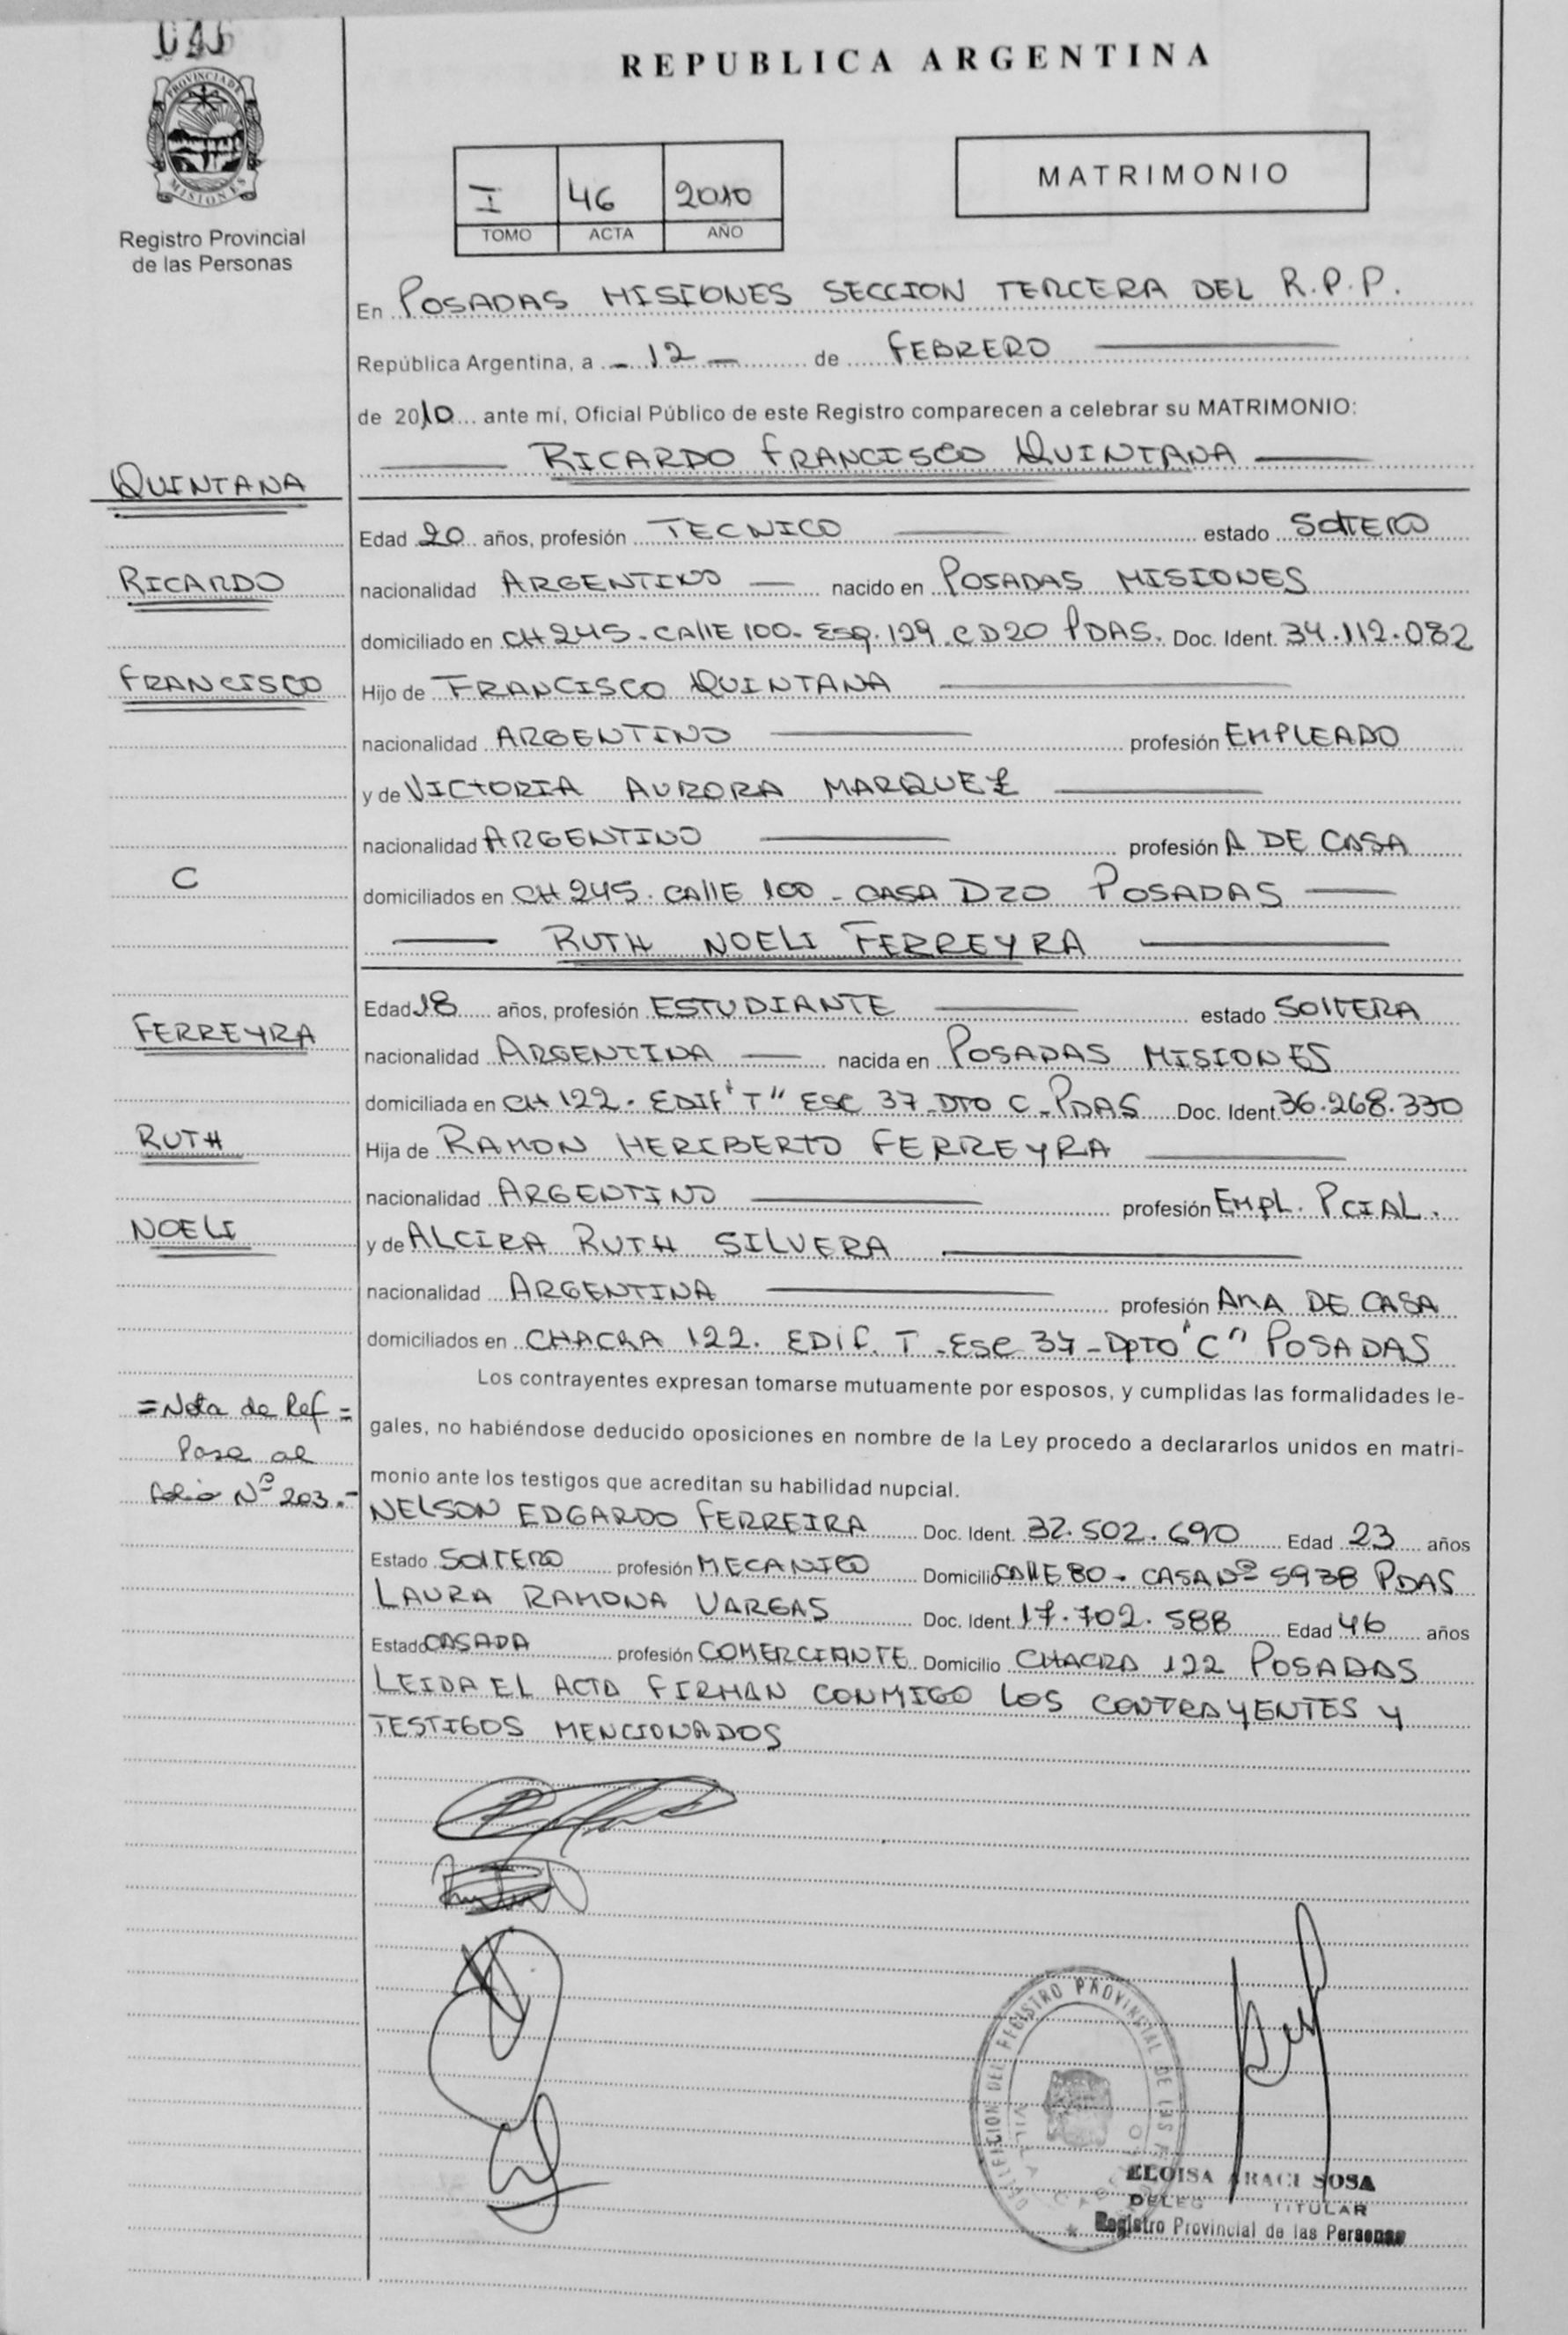 046
PROVINCIA DE
MISIONES
Registro Provincial
de las Personas
REPUBLICA ARGENTINA
I 46 2010
TOMO ACTA AÑO
MATRIMONIO
En POSADAS MISIONES SECCION TERCERA DEL R.P.P.
República Argentina, a - 12 - de FEBRERO
de 2010 ante mí, Oficial Público de este Registro comparecen a celebrar su MATRIMONIO:
RICARDO FRANCISCO QUINTANA
QUINTANA
Edad 20 años, profesión TECNICO estado SOLTERO
RICARDO
nacionalidad ARGENTINO nacido en POSADAS MISIONES
domiciliado en CH 245. CALLE 100- ESQ. 129 C D20 PDAS. Doc. Ident. 34.112.082
FRANCISCO
Hijo de FRANCISCO QUINTANA
nacionalidad ARGENTINO profesión EMPLEADO
y de VICTORIA AURORA MARQUEZ
nacionalidad ARGENTINO profesión A DE CASA
C
domiciliados en CH 245. CALLE 100 - CASA D20 POSADAS
RUTH NOELI FERREYRA
Edad 18 años, profesión ESTUDIANTE estado SOLTERA
FERREYRA
nacionalidad ARGENTINA nacida en POSADAS MISIONES
domiciliada en CH 122. EDIF "T" ESC 37 DTO C - PDAS Doc. Ident. 36.268.330
RUTH
Hija de RAMON HERIBERTO FERREYRA
nacionalidad ARGENTINO profesión EMPL. PCIAL.
NOELI
y de ALCIRA RUTH SILVERA
nacionalidad ARGENTINA profesión AMA DE CASA
domiciliados en CHACRA 122. EDIF. T - ESC 37 - DPTO "C" POSADAS
Los contrayentes expresan tomarse mutuamente por esposos, y cumplidas las formalidades le-
gales, no habiéndose deducido oposiciones en nombre de la Ley procedo a declararlos unidos en matri-
monio ante los testigos que acreditan su habilidad nupcial.
= Nota de Ref =
Pasa al
folio Nº 203.-
NELSON EDGARDO FERREIRA Doc. Ident. 32.502.690 Edad 23 años
Estado SOLTERO profesión MECANICO Domicilio CALLE 80 - CASA Nº 5938 PDAS
LAURA RAMONA VARGAS Doc. Ident. 17.702.588 Edad 46 años
Estado CASADA profesión COMERCIANTE Domicilio CHACRA 122 POSADAS
LEIDA EL ACTA FIRMAN CONMIGO LOS CONTRAYENTES Y
TESTIGOS MENCIONADOS
DEL REGISTRO PROVINCIAL DE LAS
ELOISA ARACI SOSA
TITULAR
Registro Provincial de las Personas